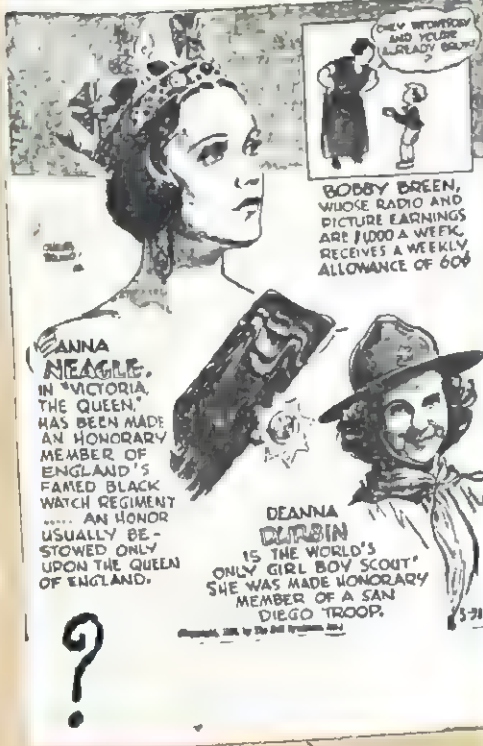 ONLY WEDNESDAY
AND YOU'RE
ALREADY BROKE
?
BOBBY BREEN,
WHOSE RADIO AND
PICTURE EARNINGS
ARE $1,000 A WEEK,
RECEIVES A WEEKLY
ALLOWANCE OF 60¢
ANNA
NEAGLE,
IN "VICTORIA,
THE QUEEN,"
HAS BEEN MADE
AN HONORARY
MEMBER OF
ENGLAND'S
FAMED BLACK
WATCH REGIMENT
..... AN HONOR
USUALLY BE-
STOWED ONLY
UPON THE QUEEN
OF ENGLAND.
DEANNA
DURBIN
IS THE WORLD'S
ONLY GIRL BOY SCOUT'
SHE WAS MADE HONORARY
MEMBER OF A SAN
DIEGO TROOP.
by The Bell Syndicate, Inc.
?